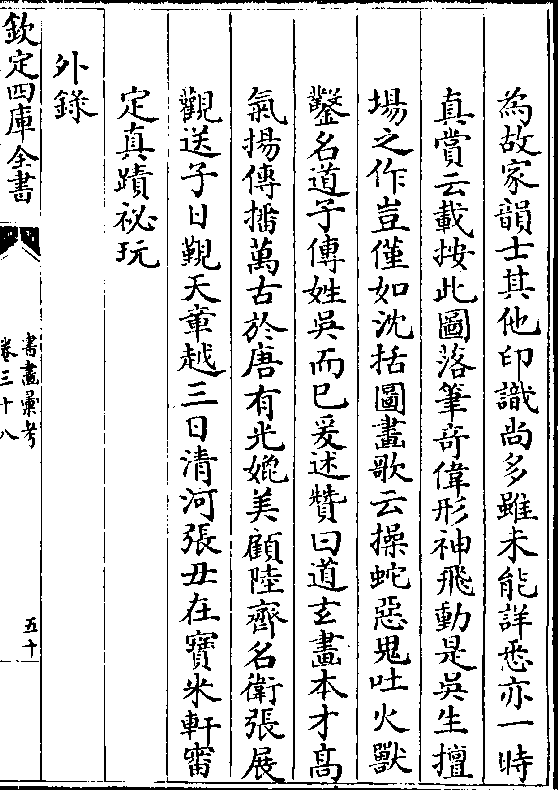 為故家韻士其他印識尚多雖未能詳悉亦一時
真賞云載按此圖落筆奇偉形神飛動是吳生擅
場之作豈僅如沈括圖畫歌云操蛇惡鬼吐火獸
鑿名道子傳姓吳而已爰述贊曰道玄畫本才髙
氣揚傳播萬古於唐有光媲美顧陸齊名衛張展
觀送子日覲天章越三日清河張丑在寶米軒審
定真蹟祕玩
外錄
欽定四庫全書
書畫彙考
卷三十八
五十